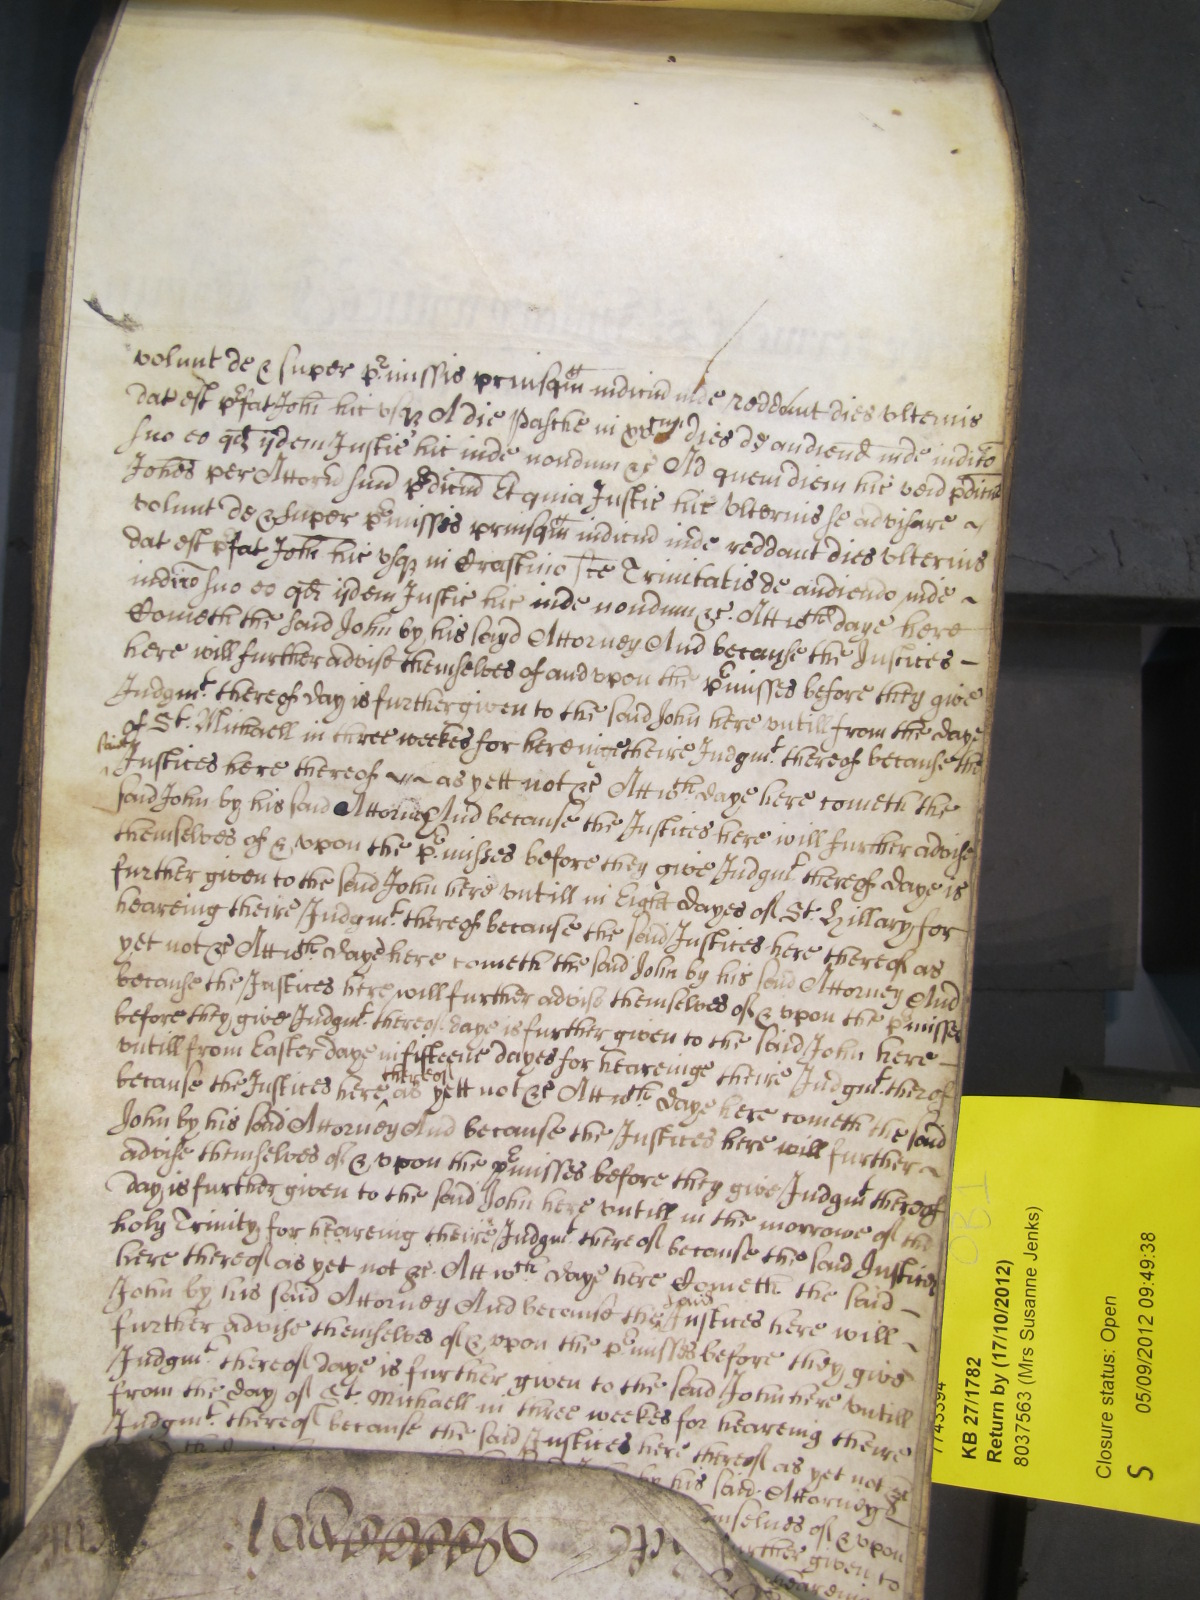 volunt de & super p̱missis priusqm iudiciū inde reddant dies ulterius
dat est p̱fat Joħi hic usq; A die Pasche in dies de audiend inde iudico
suo eo qd ijdem Justic hic inde nondum &c Ad quem diem hic ven p̱dictus
Johes per Attorn suū p̱dictū Et quia Justic hic ulterius se advisare
volunt de & super p̱missis priusqm iudiciū inde reddant dies ulterius
dat est p̱fat Joħi hic usq; in Crastino ste Trinitatis de audiendo inde
iudico suo eo qd ijdem Justic hic inde nondum &c. Att wch daye here
Cometh the said John by his sayd Attorney And because the Justices
here will further advise themselves of and upon the p̱misses before they give
Judgmt. thereof day is further given to the said John here untill from the daye
of St. Michaell in three weekes for hereinge theire Judgmt thereof because the
said
Justices here thereof as yett not &c Att wch daye here cometh the
said John by his said Attorney And because the Justices here will further advise
themselves of & upon the p̱misses before they give Judgmt. thereof daye is
further given to the said John here untill in Eight dayes of St. Hillary for
heareing theire Judgmt. thereof because the said Justices here thereof as
yet not &c Att wch daye here cometh the said John by his said Attorney And
because the Justices here will further advise themselves of & upon the p̱misses
before they give Judgmt. thereof daye is further given to the said John here
untill from Easter daye in fifteene dayes for heareinge theire Judgmt. therof
because the Justices here thereof as yett not &c Att wch daye here cometh the said
John by his said Attorney And because the Justices here will further
advise themselves of & upon the p̱misses before they give Judgmt thereof
day is further given to the said John here untill in the morrowe of the
holy Trinity for heareing theire Judgmt thereof because the said Justices
here thereof as yet not &c. Att wch daye here Cometh the said
John by his said Attorney And because the said Justices here will
further advise themselves of & upon the p̱misses before they give
Judgmt. thereof daye is further given to the said John here untill
from the day of St. Michaell in three weekes for heareing theire
Judgmt. thereof because the said Justices here thereof as yet not &c
by his said Attorney &
themselves of & upon
further given to
heareing
7743394
KB 27/1782
Return by (17/10/2012)
8037563 (Mrs Susanne Jenks)
Closure status: Open
S 05/09/2012 09:49:38